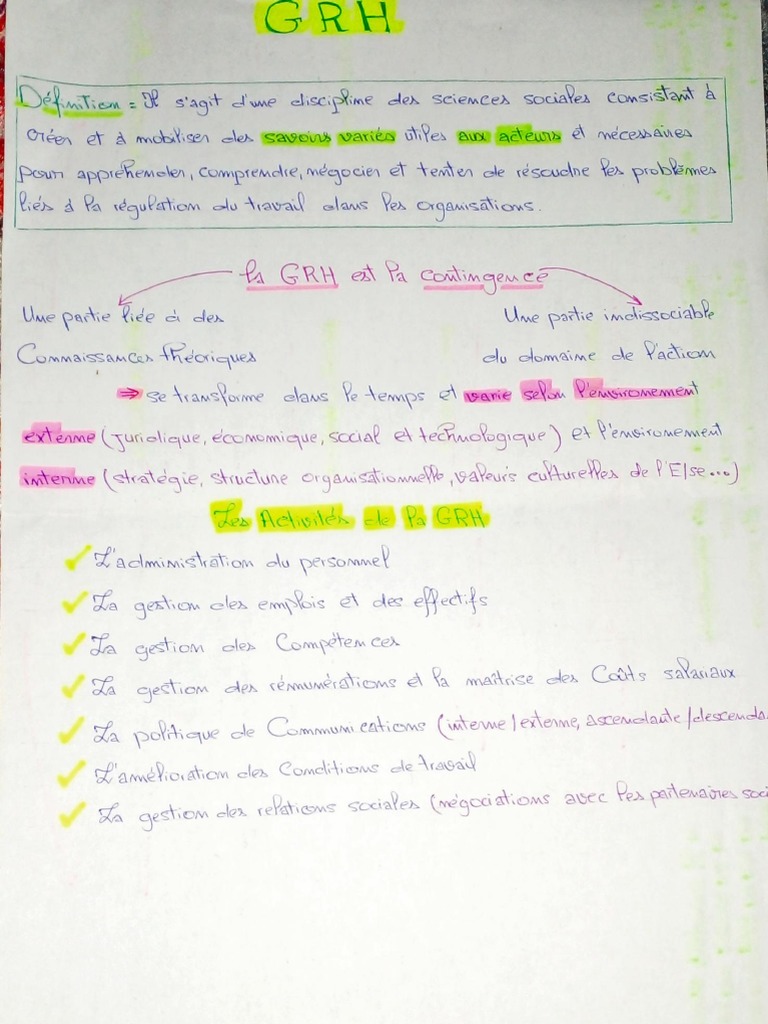 GRH
Définition = Il s'agit d'une discipline des sciences sociales consistant à
créer et à mobiliser des savoirs variés utiles aux acteurs et nécessaires
pour appréhender, comprendre, négocier et tenter de résoudre les problèmes
liés à la régulation du travail dans les organisations.
la GRH est la contingence
Une partie liée à des
Connaissances théoriques
Une partie indissociable
du domaine de l'action
⇒ se transforme dans le temps et varie selon l'environement
externe (juridique, économique, social et technologique) et l'environement
interne (stratégie, structure organisationnelle, valeurs culturelles de l'E/se...)
Les Activités de la GRH
✓ L'administration du personnel
✓ La gestion des emplois et des effectifs
✓ La gestion des Compétences
✓ La gestion des rémunérations et la maîtrise des Coûts salariaux
✓ La politique de Communications (interne/externe, ascendante/descenda
✓ L'amélioration des Conditions de travail
✓ La gestion des relations sociales (négociations avec les partenaires soci